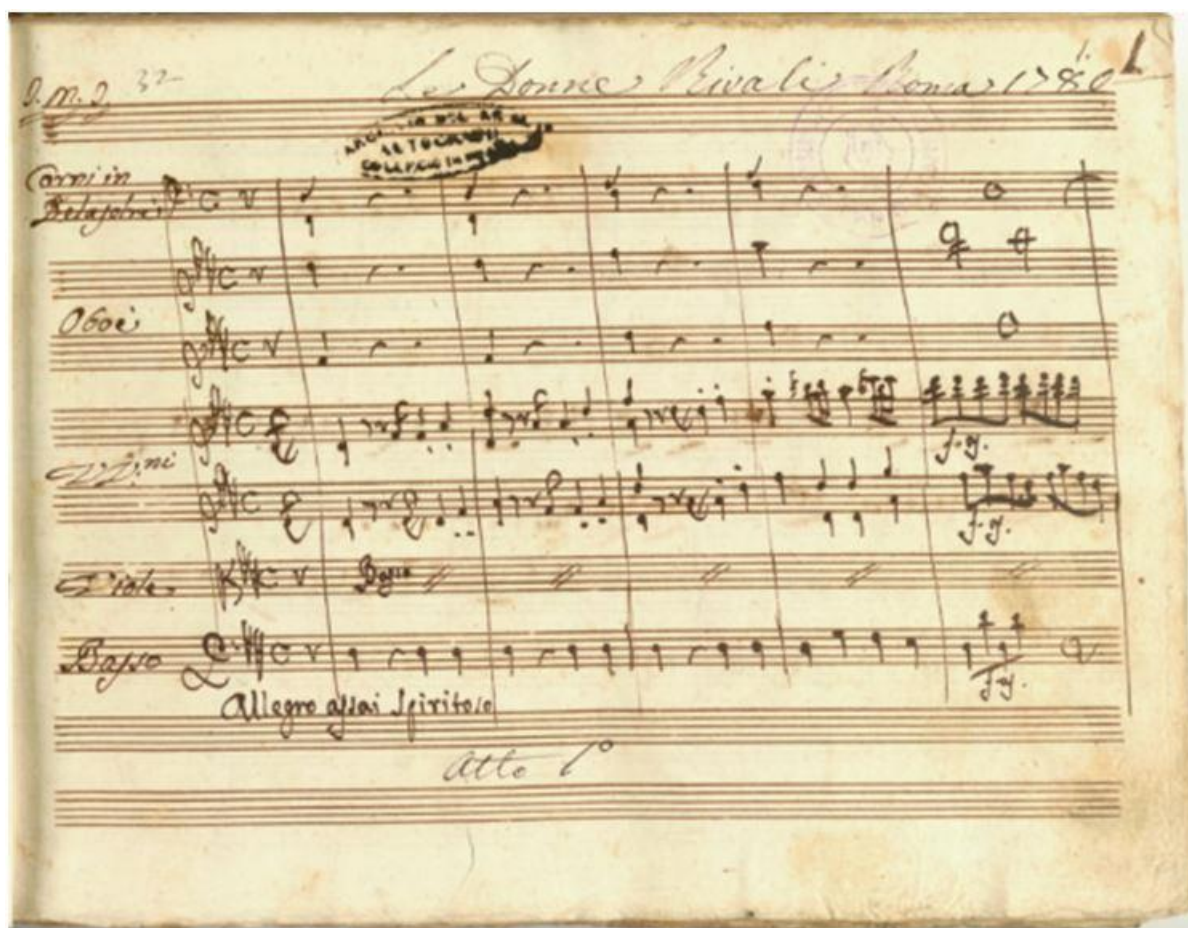 Le Donne Rivali Roma 1780
1
32
Corni in
Delasolrè
Oboè
V.V.ni
f.g.
f.g.
Viole
Basso
Basso
f.g.
Allegro assai Spiritoso
Atto 1º